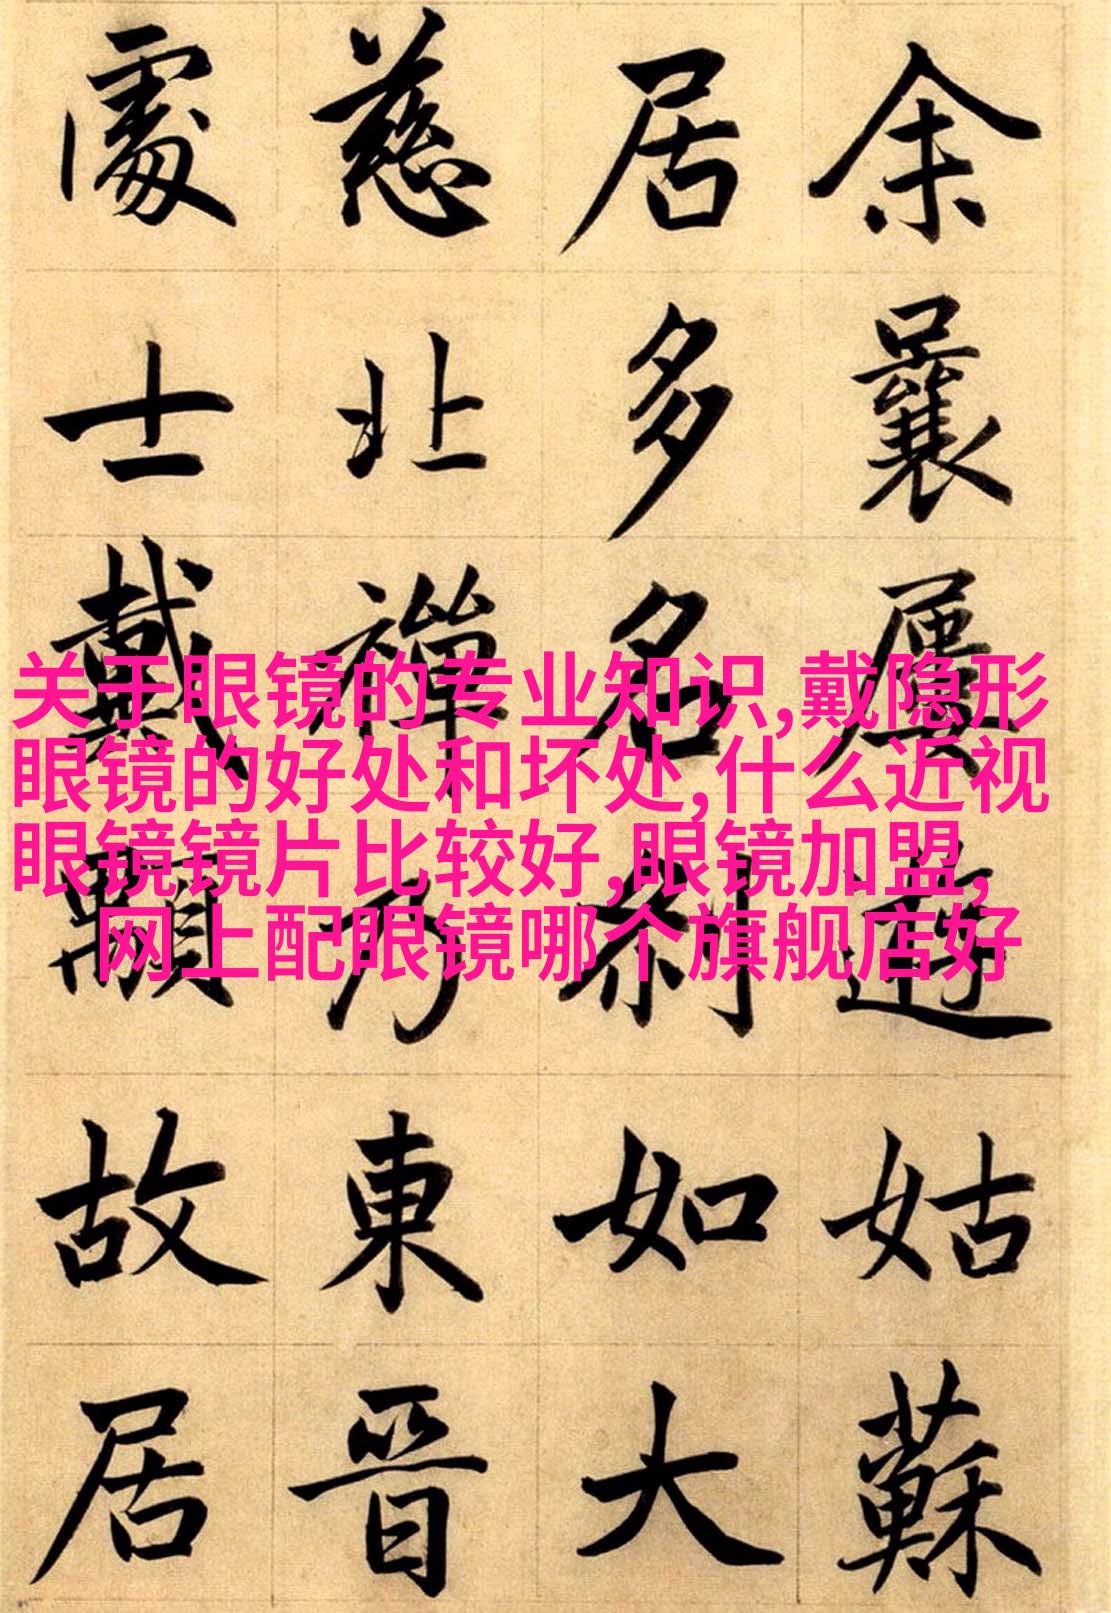 余曩屢遊姑蘇
居多名刹如大
慈北禪乃東晉
處士戴顒故居
关于眼镜的专业知识,戴隐形
眼镜的好处和坏处,什么近视
眼镜镜片比较好,眼镜加盟,
网上配眼镜哪个旗舰店好